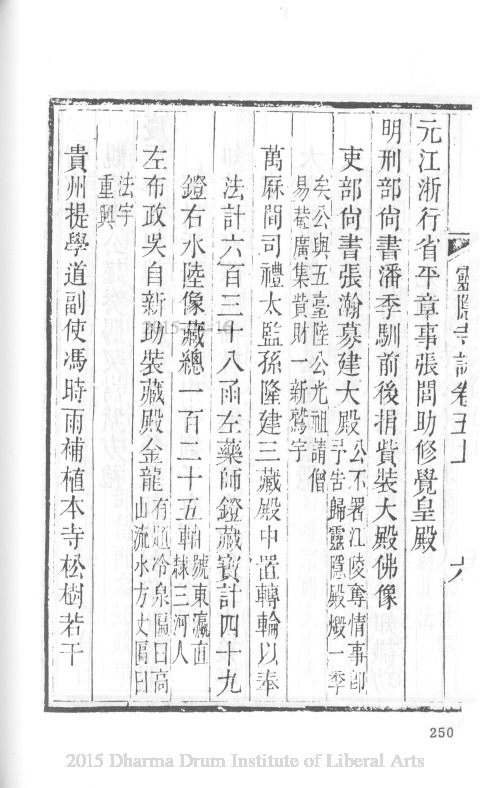 靈隱寺誌卷五上 六
元江浙行省平章事張閭助修覺皇殿
明刑部尚書潘季馴前後捐貲裝大殿佛像
吏部尚書張瀚募建大殿
公不署江陵奪情事即
予告歸靈隱殿燬一季
矣公與五臺陸公光祖請僧
易菴廣集貲財一新鷲宇
萬厤間司禮太監孫隆建三藏殿中置轉輪以奉
法計六百三十八函左藥師鐙藏寶計四十九
鐙右水陸像藏總一百二十五軸
號東瀛直
隸三河人
左布政吳自新助裝藏殿金龍
有冷泉匾曰高
山流水方丈匾曰
法宇
重興
貴州提學道副使馮時雨補植本寺松樹若干
250
2015 Dharma Drum Institute of Liberal Arts